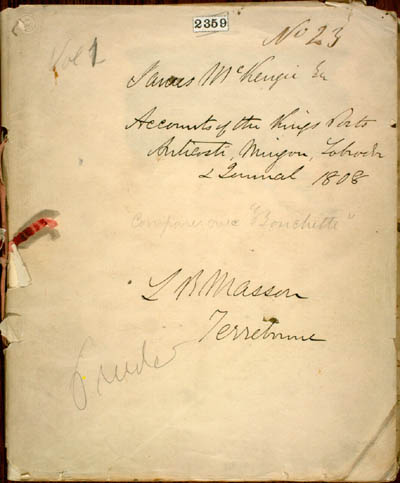 2359
No 23
Vol 1
James McKenzie Esq
Accounts of the Kings Posts
Anticosti, Mingan, Labrador
& Journal 1808
"Compare avec "Bouchette"
L R Masson
Terrebonne